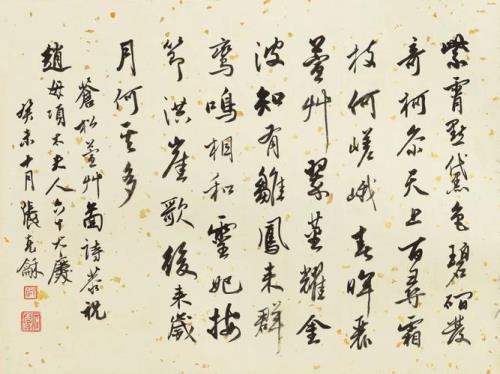 紫霄點黛色碧硐發
奇柯參天上百尋霜
枝何嵯峨春暉
萱艸翠莖耀金
波知有雛鳳來群
鸞鳴相和靈妃按
節洪崖歌後來歲
月何其多
蒼松萱艸圖詩恭祝
趙母項太夫人六十大慶
癸未十月張克龢